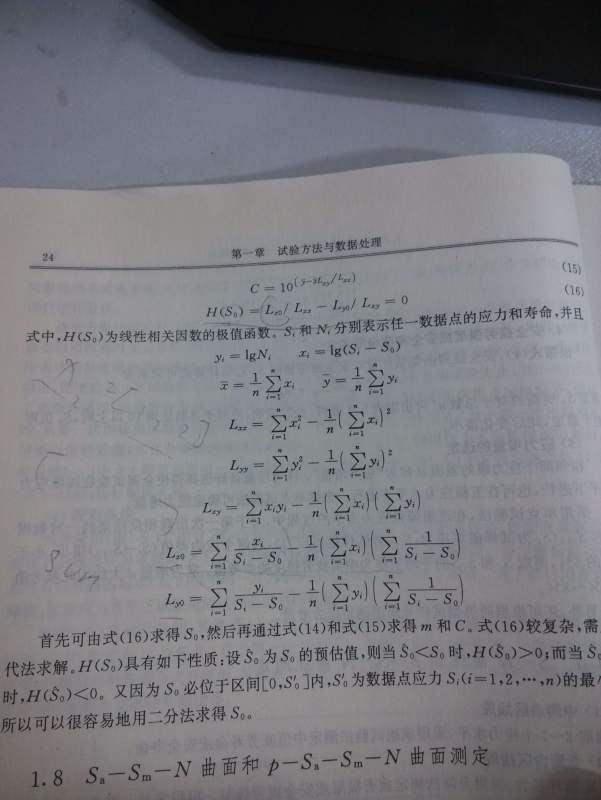 24
第一章 试验方法与数据处理
C = 10^(ȳ-x̄Lxy/Lxx) (15)
H(S₀) = Lx0/Lxx − Ly0/Lxy = 0 (16)
式中,H(S₀)为线性相关因数的极值函数。Sᵢ和Nᵢ分别表示任一数据点的应力和寿命,并且
yᵢ = lgNᵢ xᵢ = lg(Sᵢ − S₀)
x̄ = 1/n ∑ᵢ₌₁ⁿ xᵢ ȳ = 1/n ∑ᵢ₌₁ⁿ yᵢ
Lxx = ∑ᵢ₌₁ⁿ xᵢ² − 1/n (∑ᵢ₌₁ⁿ xᵢ)²
Lyy = ∑ᵢ₌₁ⁿ yᵢ² − 1/n (∑ᵢ₌₁ⁿ yᵢ)²
Lxy = ∑ᵢ₌₁ⁿ xᵢyᵢ − 1/n (∑ᵢ₌₁ⁿ xᵢ)(∑ᵢ₌₁ⁿ yᵢ)
Lx0 = ∑ᵢ₌₁ⁿ xᵢ/(Sᵢ − S₀) − 1/n (∑ᵢ₌₁ⁿ xᵢ)(∑ᵢ₌₁ⁿ 1/(Sᵢ − S₀))
Ly0 = ∑ᵢ₌₁ⁿ yᵢ/(Sᵢ − S₀) − 1/n (∑ᵢ₌₁ⁿ yᵢ)(∑ᵢ₌₁ⁿ 1/(Sᵢ − S₀))
首先可由式(16)求得S₀,然后再通过式(14)和式(15)求得m和C。式(16)较复杂,需
代法求解。H(S₀)具有如下性质:设Ŝ₀为S₀的预估值,则当Ŝ₀<S₀时,H(Ŝ₀)>0;而当Ŝ₀
时,H(Ŝ₀)<0。又因为S₀必位于区间[0,S′₀]内,S′₀为数据点应力Sᵢ(i=1,2,…,n)的最
所以可以很容易地用二分法求得S₀。
1.8 Sₐ−Sₘ−N 曲面和 p−Sₐ−Sₘ−N 曲面测定